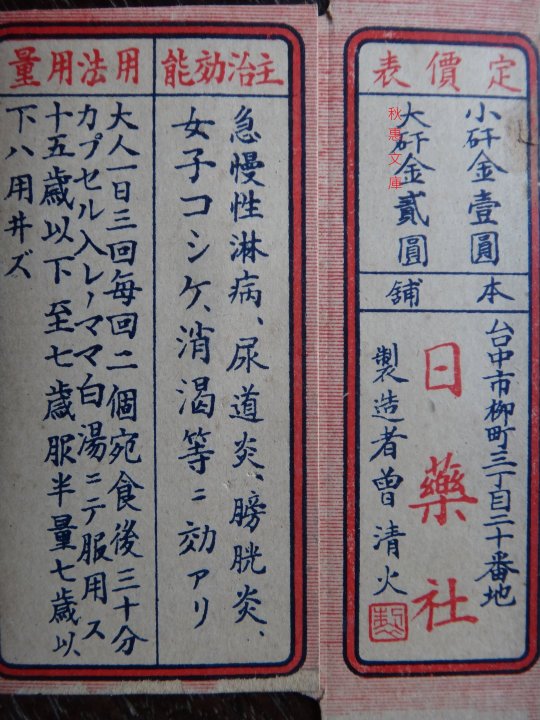 定價表
小矸金壹圓
大矸金貳圓
本舖
台中市柳町三丁目二十番地
日藥社
製造者曾清火
主治効能
急慢性淋病、尿道炎、膀胱炎、
女子コシケ、消渴等ニ効アリ
用法用量
大人一日三回每回二個宛食後三十分
カプセル入レノママ白湯ニテ服用ス
十五歳以下至七歳服半量七歳以
下ハ用井ズ
秋惠文庫